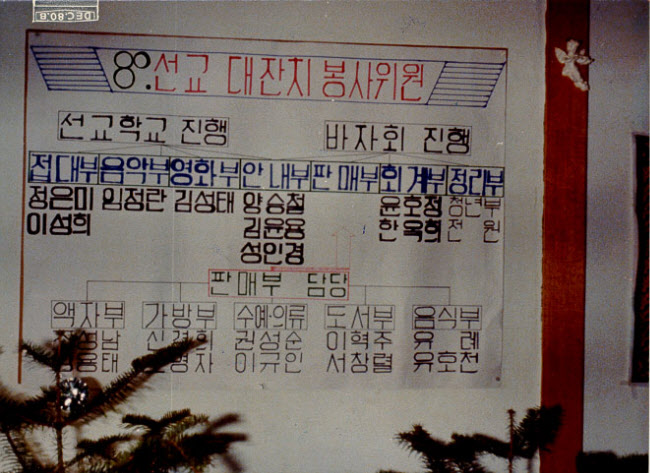 DEC.80.B
80.선교 대잔치 봉사위원
선교학교 진행 바자회 진행
접대부 음악부 영화부 안내부 판매부 회계부 정리부
정은미 임정란 김성태 양승철 윤호정 청년부
이성희 김윤용 한옥희 전원
성인경
판매부 담당
액자부 가방부 수예·의류 도서부 음식부
권성순 이혁주 유
이규인 서창렬 유호천